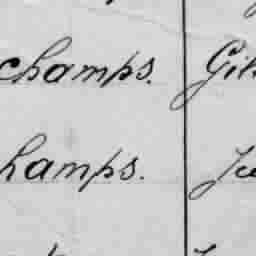 champs. Gil
hamps. Je